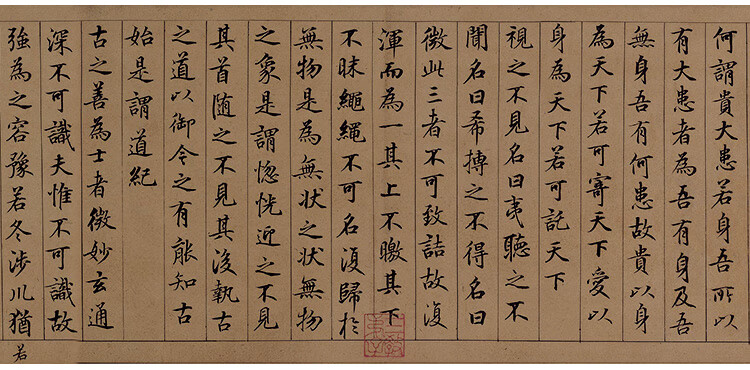 何謂貴大患若身吾所以
有大患者為吾有身及吾
無身吾有何患故貴以身
為天下若可寄天下愛以
身為天下若可託天下
視之不見名曰夷聽之不
聞名曰希搏之不得名曰
微此三者不可致詰故復
渾而為一其上不皦其下
不昧繩繩不可名復歸於
無物是為無状之状無物
之象是謂惚恍近之不見
其首随之不見其後執古
之道以御今之有能知古
始是謂道紀
古之善為士者微妙玄通
深不可識夫惟不可識故
強為之容豫若冬涉川猶
若